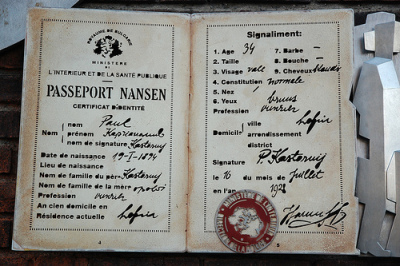 ROYAUME DE BULGARIE
MINISTERE
DE
L'INTERIEUR ET DE LA SANTE PUBLIQUE
PASSEPORT NANSEN
CERTIFICAT D'IDENTITÉ
nom Paul
Nom prénom
nom de signature Kasterny
Date de naissance 19-I-1894
Lieu de naissance
Nom de famille du père Kasterny
Nom de famille de la mère
Profession ouvrier
An cien domicile en
Résidence actuelle Sofia
4
Signaliment:
1. Age 34
2. Taille
3. Visage vale
4. Constitution normale
5. Nez
6. Yeux bruns
Profession ouvrier
7. Barbe –
8. Bouche –
9. Cheveux
ville Sofia
Domicile arrendissement
district
Signature P. Kasterny
le 16 du mois de Juillet
en l'an 1928
5